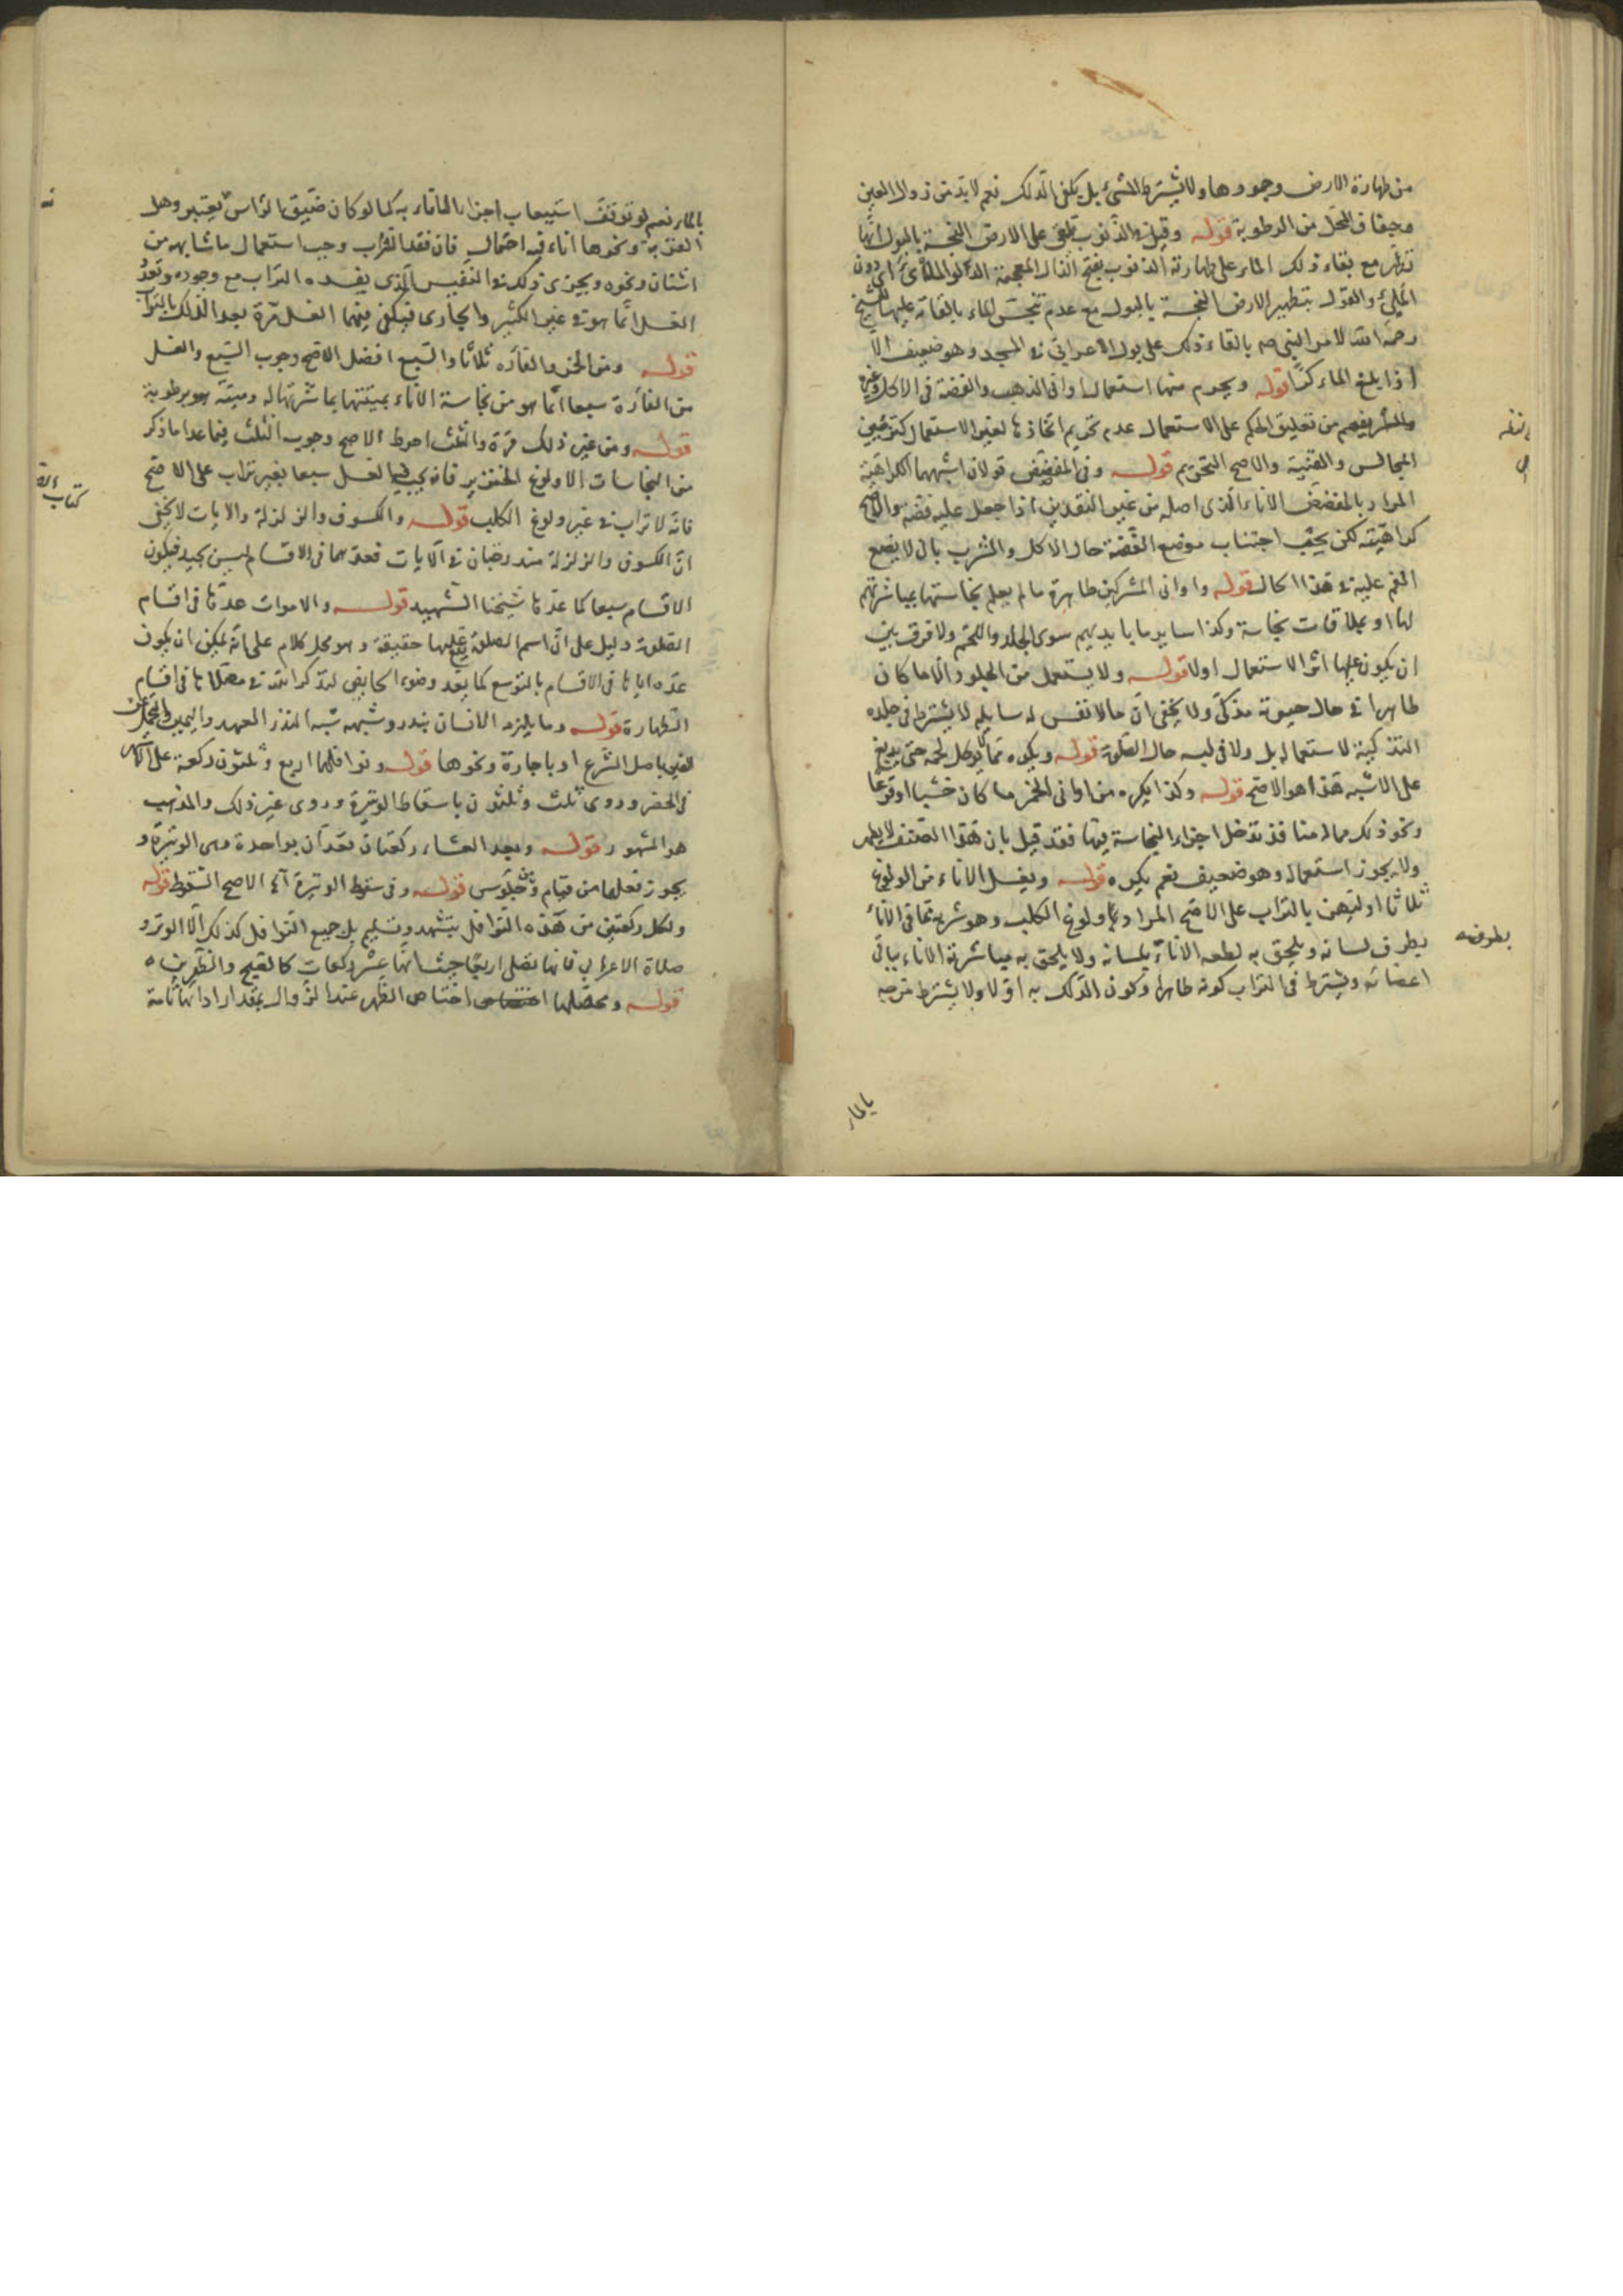 من طهارة الارض وجمودها ولا يشترط المشي بل يكفي الدلك نعم لا بد من زوال العين
وجفاف المحل من الرطوبة قوله وقيل في الذنوب تلقى على الارض النجسة بالبول انها
تطهر مع بقاء ذلك الماء على طهارته الذنوب بفتح الذال المعجمة الدلو الملأى اي دون
الملئ والقول بتطهير الارض النجسة بالبول مع عدم تنجس الماء بالقائه عليها للشيخ
رحمه الله لامر النبي صه بالقاء ذلك على بول الاعرابي في المسجد وهو ضعيف الا
اذا بلغ الماء كرا قوله ويحرم منها استعمال اواني الذهب والفضة في الاكل وغيره
من تعليق الحكم على الاستعمال عدم تحريم اتخاذها لغير الاستعمال كتزيين
المجالس والقنية والاصح التحريم قوله وفي المفضض قولان اشبههما الكراهية
المراد بالمفضض الاناء الذي اصله من غير النقدين اذا جعل عليه فضة والاصح
كراهيته لكن يجب اجتناب موضع الفضة حال الاكل والشرب بان لا يضع
الفم عليه في هذا الحال قوله واواني المشركين طاهرة ما لم يعلم نجاستها بمباشرتهم
لها او بملاقات نجاسة وكذا ساير ما بايديهم سوى الجلد واللحم ولا فرق بين
ان يكون عليها اثر الاستعمال اولا قوله ولا يستعمل من الجلود الا ما كان
طاهرا في حال حيوته مذكى ولا يخفى ان ما لا نفس له سايلة لا يشترط في جلده
التذكية لاستعماله بل ولا في لبسه حال الصلوة قوله ويكره مما لا يؤكل لحمه حتى يدبغ
على الاشبه هذا هو الاصح قوله وكذا يكره من اواني الخمر ما كان خشبا او قرعا
ونحو ذلك مما له منافذ تدخل اجزاء النجاسة فيها فقد قيل بان هذا الصنف لا يطهر
ولا يجوز استعماله وهو ضعيف نعم يكره قوله ويغسل الاناء من الولوغ
ثلاثا اولهن بالتراب على الاصح المراد ولوغ الكلب وهو شربه مما في الاناء
بطرف لسانه ويلحق به لطعه الاناء بلسانه ولا يلحق به مباشرته الاناء بباقي
اعضائه ويشترط في التراب كونه طاهرا وكون الدلك به اولا ولا يشترط مزجه
بالماء
بالماء نعم لو توقف استيعاب اجزاء الاناء به كما لو كان ضيق الراس يعتبر وهل
القربة ونحوها اناء فيه احتمال فان فقد التراب وجب استعمال ما شابهه من
اشنان ونحوه ويجزي ذلك في النفيس الذي يفسده التراب مع وجوده وتعدد
الغسل انما هو في غير الكثير والجاري فيكفي فيهما الغسل مرة بعد الدلك بالتراب
قوله ومن الخمر والفارة ثلاثا والسبع افضل الاصح وجوب السبع والغسل
من الفارة سبعا انما هو من نجاسة الاناء بميتتها بمباشرتها له وميتة برطوبة
قوله ومن غير ذلك مرة والثلث احوط الاصح وجوب الثلث فيما عدا ما ذكر
من النجاسات الا ولوغ الخنزير فانه يجب فيه الغسل سبعا بغير تراب على الاصح
فانه لا تراب في غير ولوغ الكلب قوله والكسوف والزلزلة والايات لا يخفى
ان الكسوف والزلزلة مندرجان في الايات فعدهما في الاقسام ليس بجيد فيكون
الاقسام سبعا كما عدها شيخنا الشهيد قوله والاموات عدها في اقسام
الصلوة دليل على ان اسم الصلوة يقع عليها حقيقة وهو محل كلام على انه يمكن ان يكون
عده اياها في الاقسام بالتوسع كما يعد وضوء الحايض لتذكر الله في مصلاها في اقسام
الطهارة قوله وما يلزمه الانسان بنذر وشبهه شبه النذر العهد واليمين والتحمل عن
الغير باصل الشرع او باجارة ونحوها قوله ونوافلها اربع وثلثون ركعة على الاشهر
في الحضر وروى ثلث وثلثون باسقاط الوتيرة وروى غير ذلك والمذهب
هو المشهور قوله وبعد العشاء ركعتان تعدان بواحدة وهي الوتيرة و
يجوز فعلها من قيام ومن جلوس قوله وفي سقوط الوتيرة آه الاصح السقوط قوله
ولكل ركعتين من هذه النوافل بتشهد وتسليم بل جميع النوافل كذلك الا الوتر و
صلاة الاعرابي فانها تصلى اربعا حيث انها عشر ركعات كالصبح والظهرين
قوله ومحصلها اختصاص الظهر عند الزوال بمقدار ادائها تامة
بطرف
كتاب الصلوة